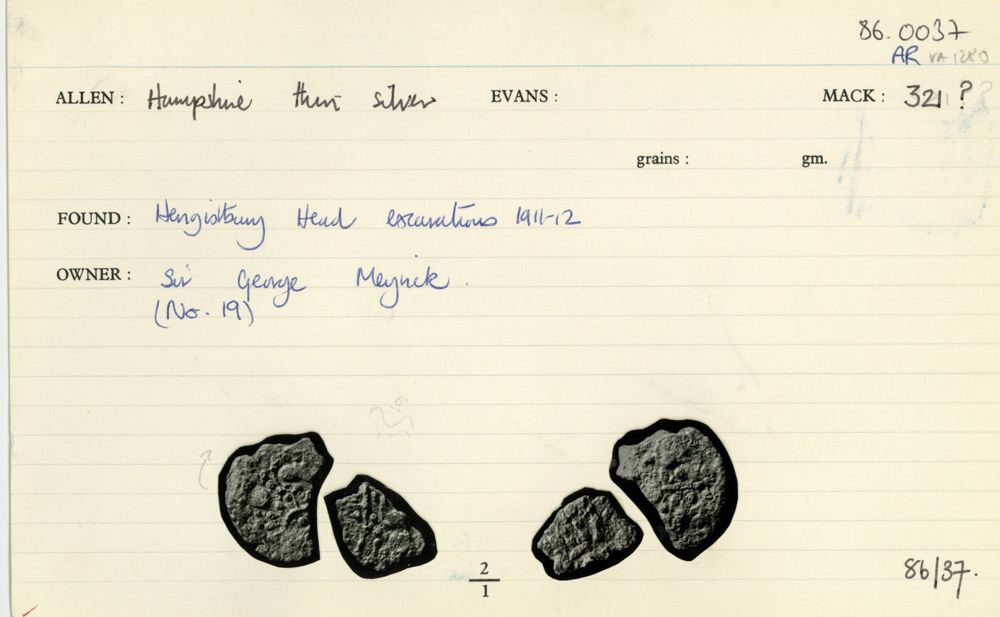 86.0037
AR VA 1280
ALLEN: Hampshire thin silver EVANS: MACK: 321 ?
grains: gm.
FOUND: Hengistbury Head excavations 1911-12
OWNER: Sir George Meyrick.
(No. 19)
2
1
86/37.